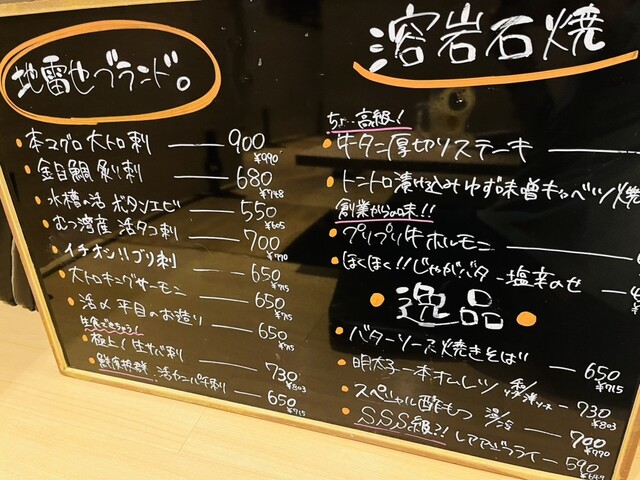 地雷也ブランド。
本マグロ大トロ刺 900
¥990
金目鯛炙り刺 680
¥748
水槽の活ボタンエビ 550
¥605
むつ湾産 活タコ刺 700
¥770
イチオシ!!ブリ刺 650
¥715
大トロキングサーモン 650
¥715
活〆平目のお造り 650
¥715
生食できちゃう!
極上!生サバ刺 730
¥803
鮮度抜群 活カンパチ刺 650
¥715
溶岩石焼
ちょー高級!
牛タン厚切りステーキ
トントロ漬け込みゆず味噌キャベツ焼
創業からの味!!
プリプリ牛ホルモン
ほくほく!!じゃがバター塩辛のせ
逸品
バターソース焼きそば 650
¥715
明太子一本オムレツ 730
¥803
スペシャル酢もつ 700
¥770
SSS級?! してアジフライ 590
¥649